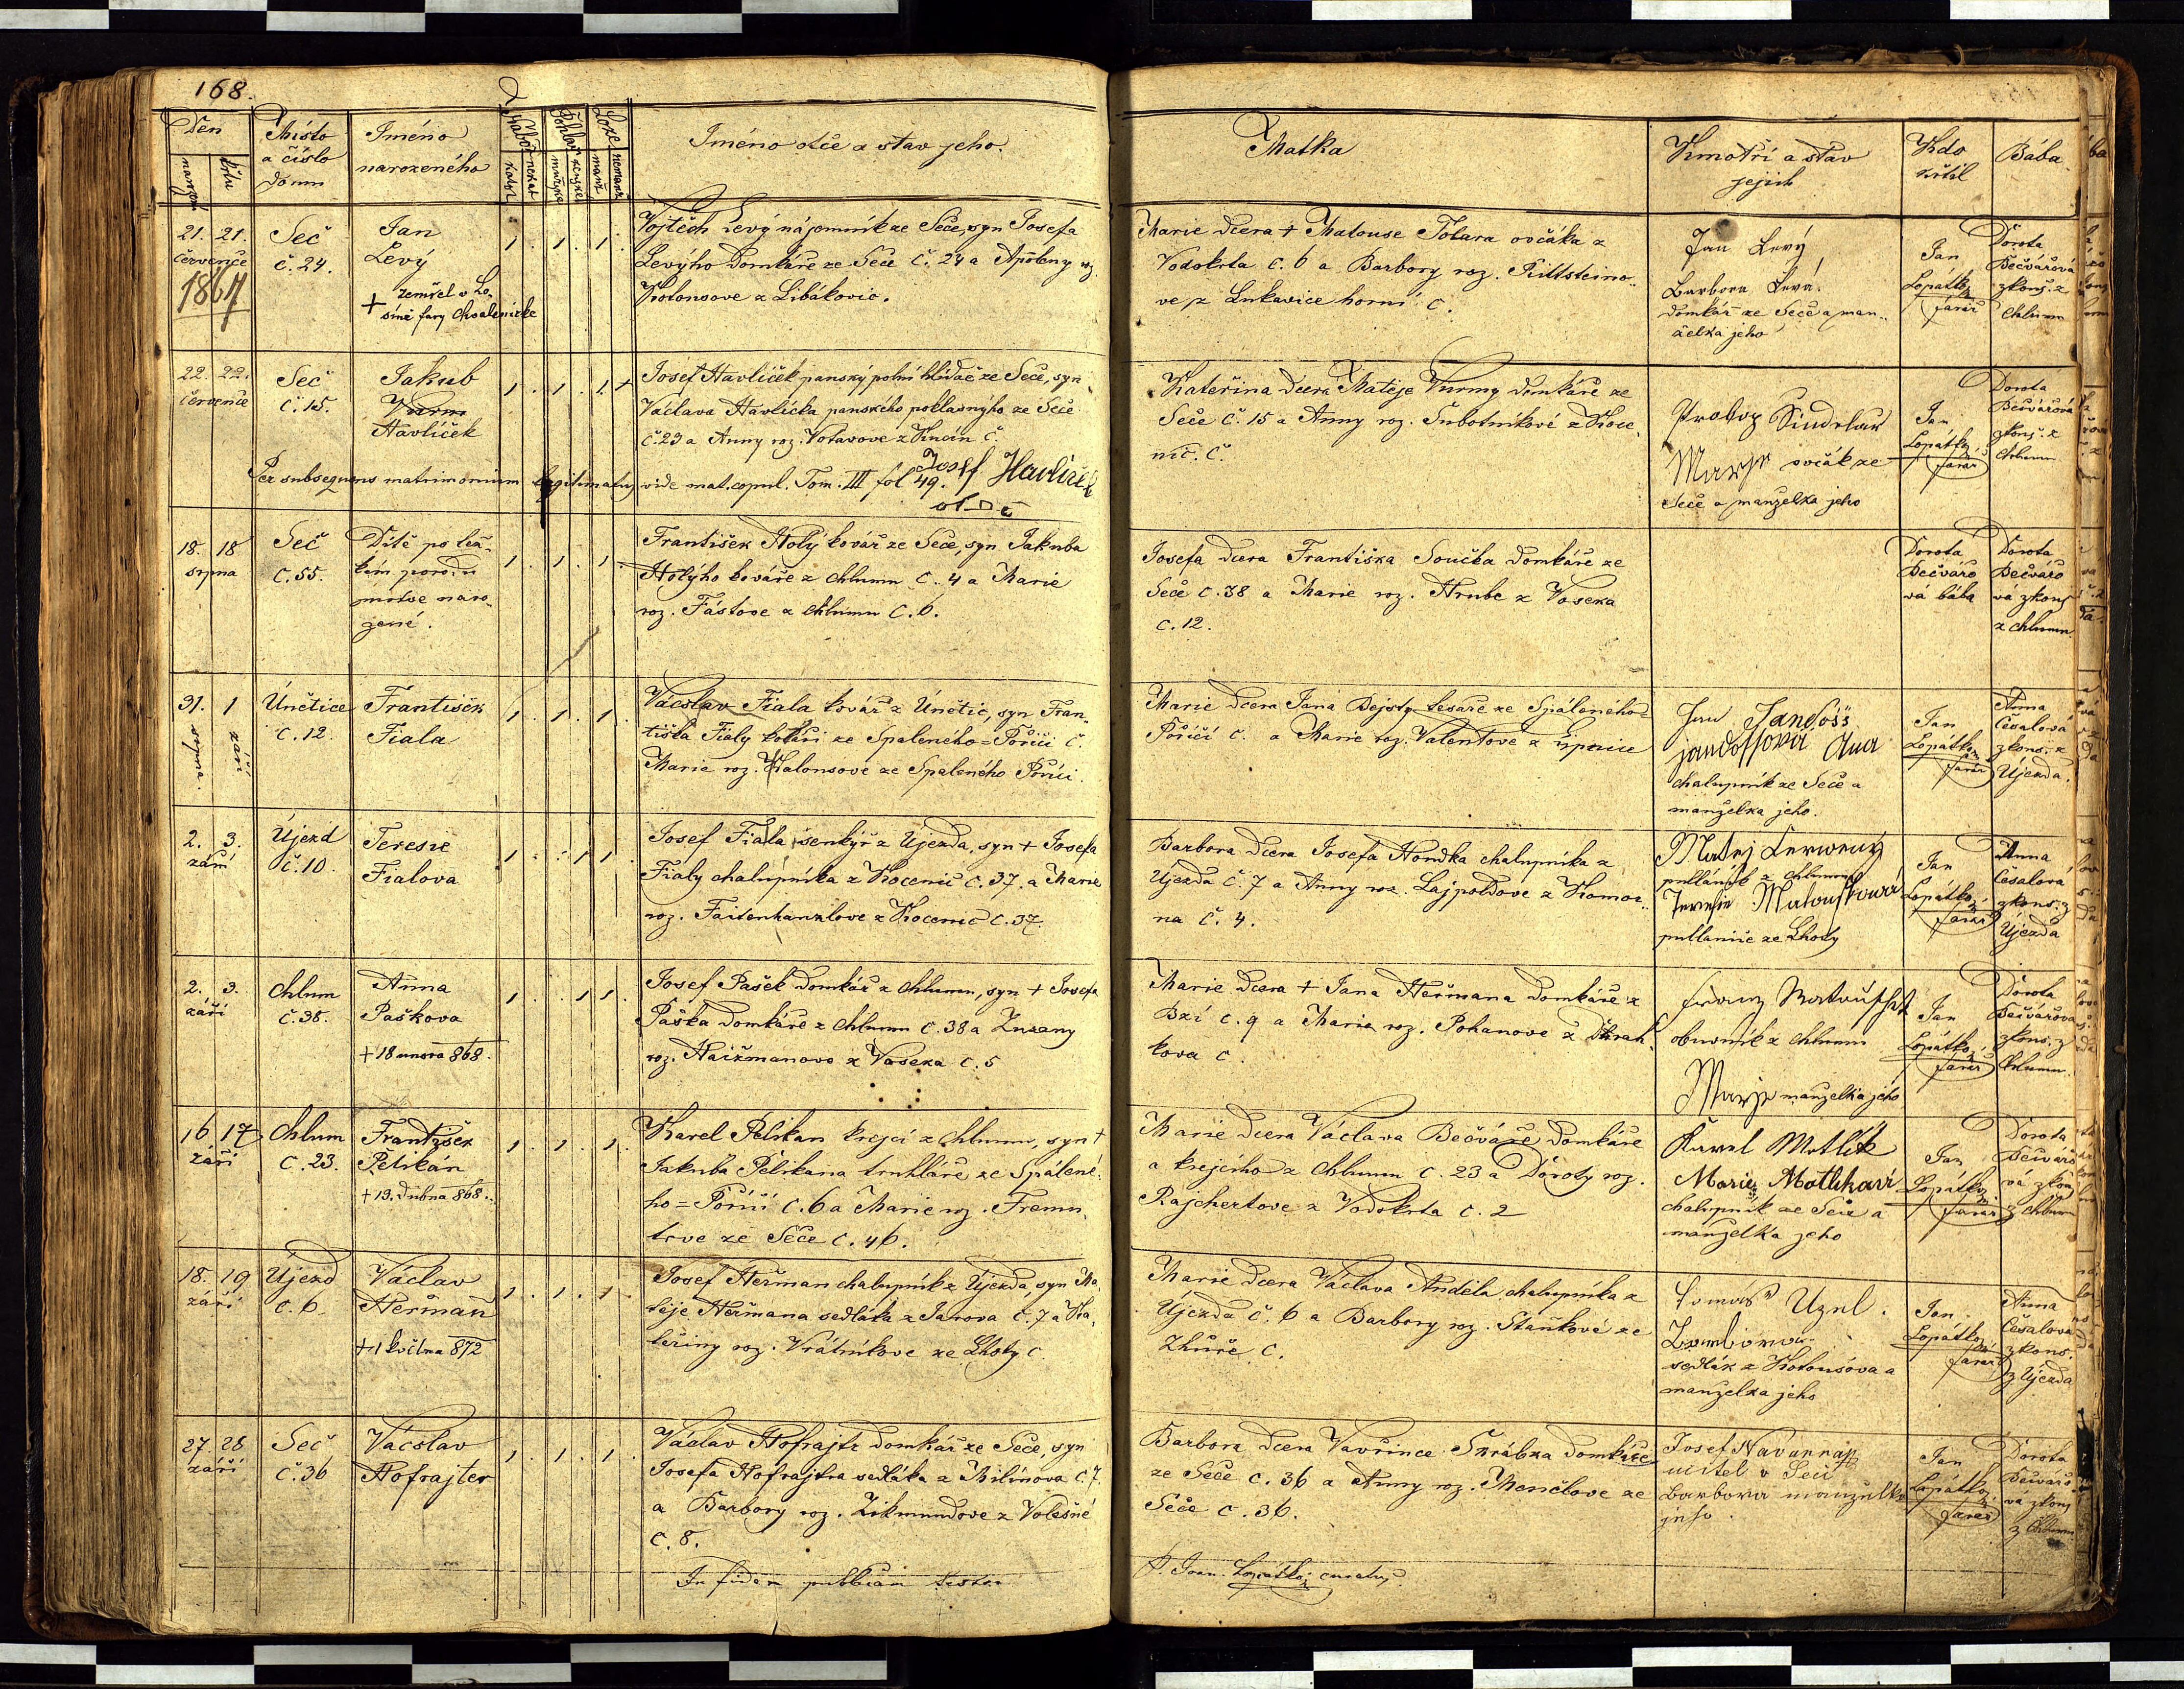 168.
Den
narození
křtu
Místo
a číslo
domu
Jméno
narozeného
Nábož.
katol.
nekat.
Pohlaví
mužské
ženské
Lože
manž.
nemanž.
Jméno otce a stav jeho.
Matka
Kmotři a stav
jejich
Kdo
křtil
Bába
21. 21.
července
1867
Seč
č. 24.
Jan
Levý
+ zemřel v Lo-
siné fary Chválenické
1. 1. 1.
Vojtěch Levý nájomník ze Seče, syn Josefa
Levýho domkáře ze Seče č. 24 a Apoleny roz.
Kotousove z Libákovic.
Marie dcera + Matouse Tolara ovčáka z
Vodokrta č. 6 a Barbory roz. Rittsteino-
ve z Lukavice horní č.
Jan Levý,
Barbora Levá.
domkář ze Seče a man-
želka jeho
Jan
Lopatko
farář
Dorota
Bečvářová
zkouš. z
Chlumu
22. 22.
července
Seč
č. 15.
Jakub
Vurm
Havlíček
1. 1. 1. +
Josef Havlíček panský polní hlídač ze Seče, syn
Václava Havlíčka panského poklasnýho ze Seče
č. 23 a Anny roz. Votavove z Knčín č.
Per subsequens matrimonium legitimatus vide mat. copul. Tom. III fol 49. Josef Havlíček
otec
Kateřina dcera Matěje Vurmy domkáře ze
Seče č. 15 a Anny roz. Subotníkové z Koce-
nic. č.
Prokop Sindelař
Marye ovčák ze
Seče a manželka jeho
Jan
Lopatko
farář
Dorota
Bečvářová
zkouš. z
Chlumu
18. 18
srpna
Seč
č. 55.
Dítě po těž-
kém porodu
mrtve naro-
zené.
1. 1. 1.
František Holý kovář ze Seče, syn Jakuba
Holýho kováře z Chlumu č. 4 a Marie
roz. Fástove z Chlumu č. 6.
Josefa dcera Františka Součka domkáře ze
Seče č. 38 a Marie roz. Hrube z Voseka
č. 12.
Dorota
Bečvářo
vá bába
Dorota
Bečvářo
vá zkouš
z Chlumu
31. 1
srpna. září
Únětice
č. 12.
František
Fiala
1. 1. 1.
Vácslav Fiala kovář z Únětic, syn Fran-
tiška Fialy koláři ze Spáleného=Poříčí č.
Marie roz. Kalousové ze Spaleného Poříčí.
Marie dcera Jana Bejsty tesaře ze Spáleného=
Poříčí č. a Marie roz. Valentove z Lipnice
Jan Jandoss
jandossova Ana
chalupník ze Seče a
manželka jeho.
Jan
Lopatko
farář
Anna
Česalová
zkouš. z
Újezda.
2. 3.
září
Újezd
č. 10.
Teresie
Fialova
1. 1 1.
Josef Fiala senkýř z Újezda, syn + Josefa
Fialy chalupníka z Kocenic č. 37. a Marie
roz. Faitenhanzlove z Kocenic č. 37.
Barbora dcera Josefa Houdka chalupníka z
Újezda č. 7 a Anny roz. Lajpoldove z Komor-
na č. 4.
Matej Cerweny
pullánik z Chlumu
Teresie Matouskova
pullanice ze Lhoty
Jan
Lopatko
farář
Anna
Česalová
zkouš. z
Újezda
2. 3.
září
Chlum
č. 38.
Anna
Paškova
+ 18 unora 868.
1. 1 1.
Josef Pašek domkář z Chlumu, syn + Josefa
Paška domkáře z Chlumu č. 38 a Zuzany
roz. Haizmanovo z Voseka č. 5
Marie dcera + Jana Heřmana domkáře z
Bzí č. 9 a Marie roz. Pohanove z Strah-
kova č.
obuvník z Chlumu
Marye manželka jého
Jan
Lopatko
farář
Dorota
Bečvářova
zkouš. z
Chlumu.
16. 17
září
Chlum
č. 23.
František
Pelikán
+ 19. dubna 868.
1. 1. 1.
Karel Pelikan krejci z Chlumu, syn +
Jakuba Pelikana truhláře ze Spálené-
ho=Poříčí č. 6 a Marie roz. Fremu-
tove ze Seče č. 46.
Marie dcera Václava Bečváře domkáře
a krejčího z Chlumu č. 23 a Doroty roz.
Rajchertove z Vodokrta č. 2
Karel Motlik
Marie Motlikova
chalupník ze Seče a
manželka jeho
Jan
Lopatko
farář
Dorota
Bečvářo
vá zkouš
z Chlumu
18. 19
září
Újezd
č. 6.
Václav
Heřman
+ 1 května 872
1. 1. 1.
Josef Heřman chalupník z Újezda, syn Ma-
těje Heřmana sedláka z Janova č. 7 a Ka-
teřiny roz. Vrátníkove ze Lhoty č.
Marie dcera Václava Anděla chalupníka z
Újezda č. 6 a Barbory roz. Staňkové ze
Zhůře č.
Tomáš Uzel.
sedlák z Kotousova a
manželka jeho
Jan
Lopatko
farář
Anna
Česalova
zkouš.
z Újezda
27. 28
září
Seč
č. 36
Vácslav
Hofrajter
1. 1. 1.
Václav Hofrajtr domkář ze Seče, syn
Josefa Hofrajtra sedláka z Milinova č. 7.
a Barbory roz. Zikmundove z Volešné
č. 8.
Barbora dcera Vavřince Skrábka domkáře
ze Seče č. 36 a Anny roz. Menclove ze
Seče č. 36.
Josef Navarra
učitel v Seči
Barbora manželka
jeho
Jan
Lopatko
farář
Dorota
Bečvářo
vá zkouš
z Chlumu
In fidem publicam testor
P. Joan. Lopatko curatus.